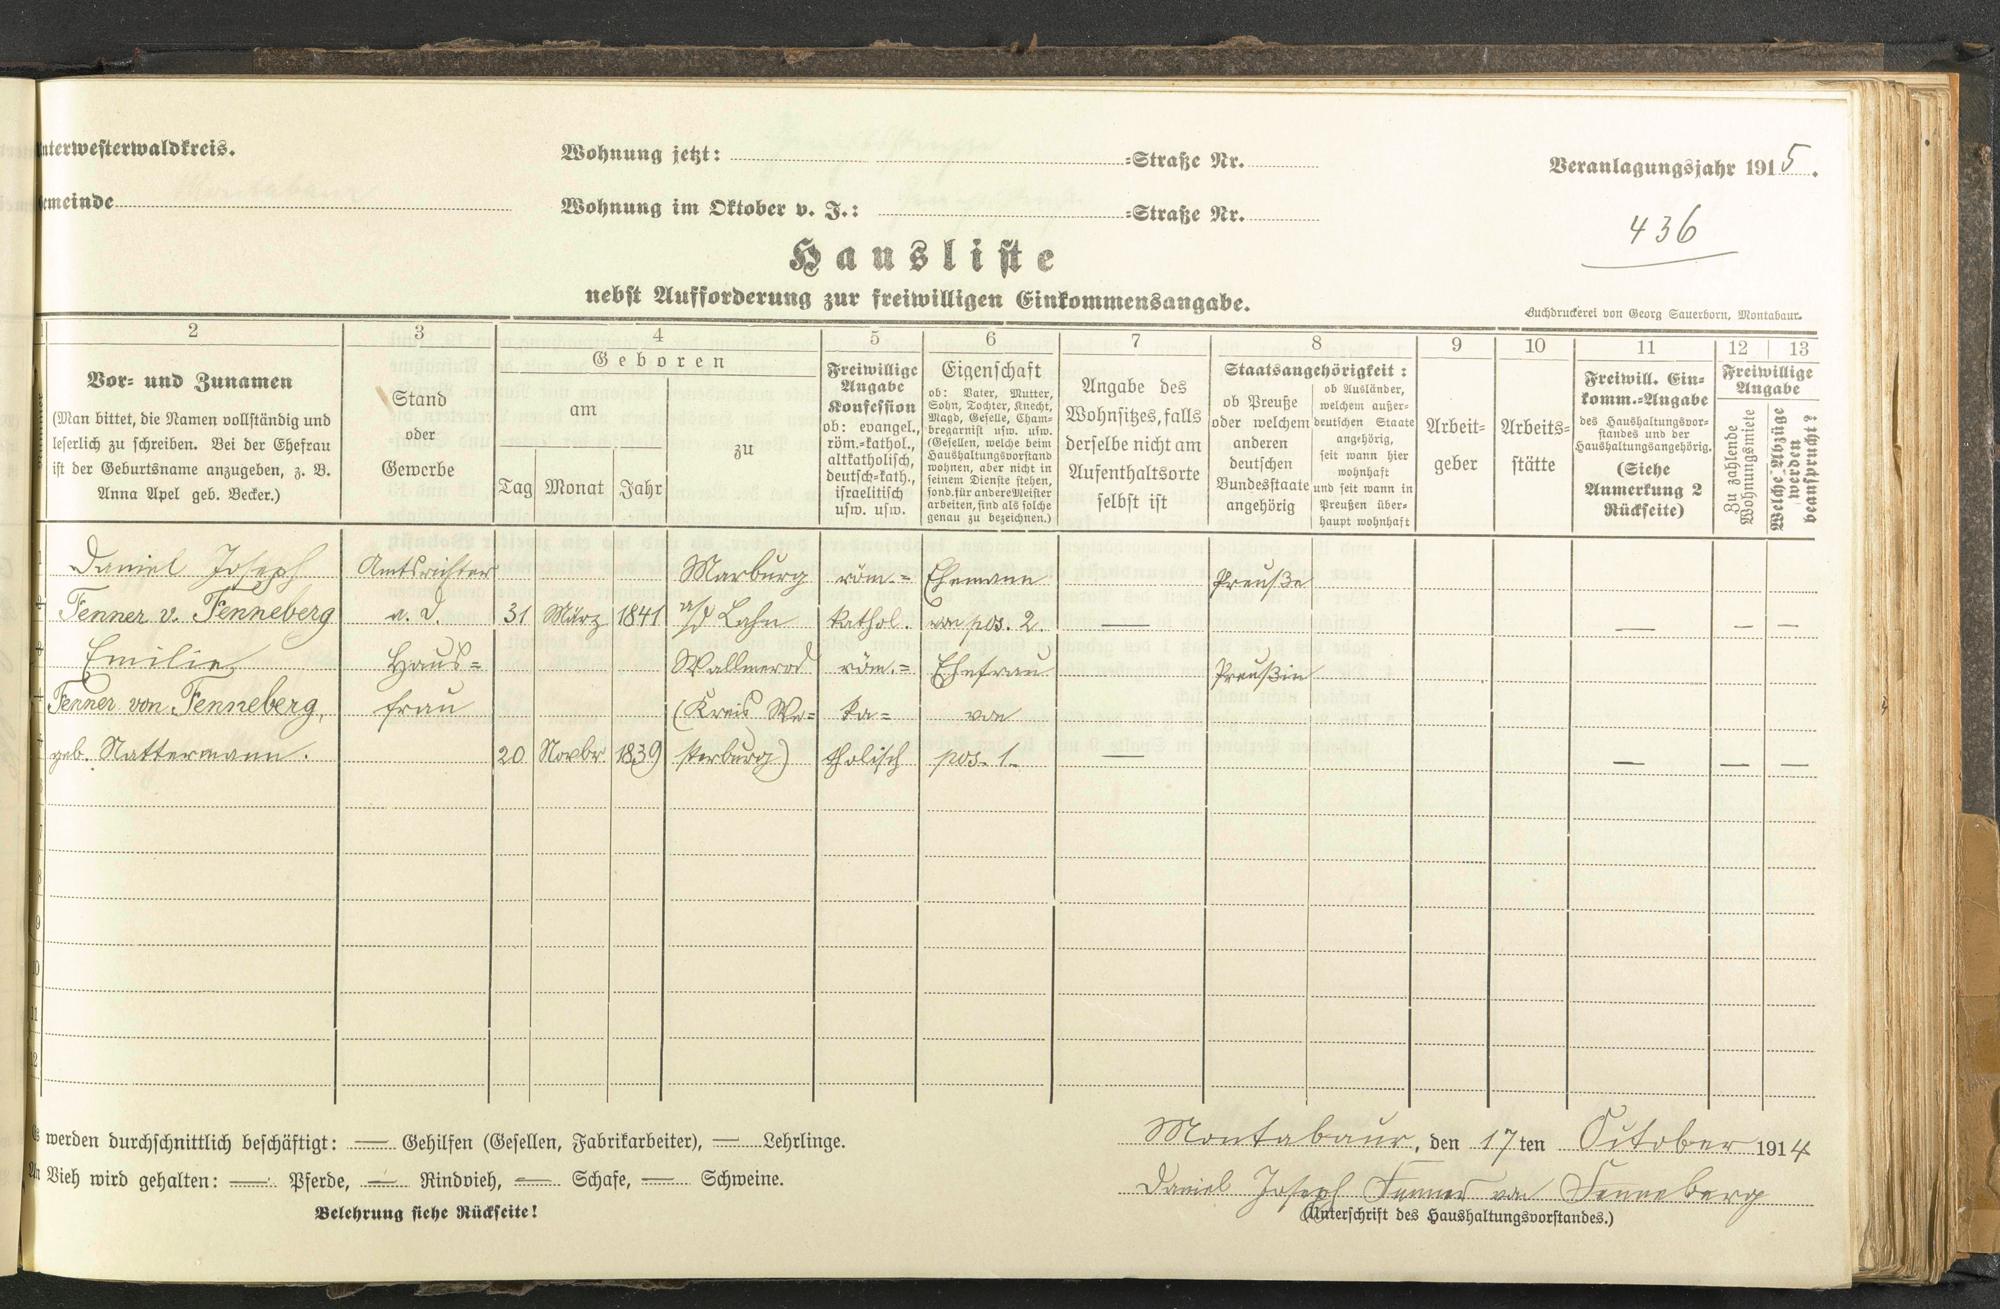 nterwesterwaldkreis.
Wohnung jetzt: -Straße Nr.
Veranlagungsjahr 1915.
emeinde
Wohnung im Oktober v. J.: -Straße Nr.
436
Hausliste
nebst Aufforderung zur freiwilligen Einkommensangabe.
Buchdruckerei von Georg Sauerborn, Montabaur.
2 3 4 5 6 7 8 9 10 11 12 13
Vor- und Zunamen
(Man bittet, die Namen vollständig und
leserlich zu schreiben. Bei der Ehefrau
ist der Geburtsname anzugeben, z. B.
Anna Apel geb. Becker.)
Stand
oder
Gewerbe
Geboren
am
Tag Monat Jahr
zu
Freiwillige
Angabe
Konfession
ob: evangel.,
röm.-kathol.,
altkatholisch,
deutsch-kath.,
israelitisch
usw. usw.
Eigenschaft
ob: Vater, Mutter,
Sohn, Tochter, Knecht,
Magd, Geselle, Cham-
bregarnist usw. usw.
(Gesellen, welche beim
Haushaltungsvorstand
wohnen, aber nicht in
seinem Dienste stehen,
sond. für andere Meister
arbeiten, sind als solche
genau zu bezeichnen.)
Angabe des
Wohnsitzes, falls
derselbe nicht am
Aufenthaltsorte
selbst ist
Staatsangehörigkeit:
ob Preuße
oder welchem
anderen
deutschen
Bundesstaate
angehörig
ob Ausländer,
welchem außer-
deutschen Staate
angehörig,
seit wann hier
wohnhaft
und seit wann in
Preußen über-
haupt wohnhaft
Arbeit-
geber
Arbeits-
stätte
Freiwill. Ein-
komm.-Angabe
des Haushaltungsvor-
standes und der
Haushaltungsangehörig.
(Siehe
Anmerkung 2
Rückseite)
Freiwillige
Angabe
Zu zahlende
Wohnungsmiete
Welche Abzüge
werden
beansprucht?
Daniel Joseph Amtsrichter Marburg röm.= Ehemann Preuße
Fenner v. Fenneberg a. D. 31 März 1841 a/d Lahn kathol. von pos. 2. — — — —
Emilie Haus= Wallmerod röm.= Ehefrau Preußin
Fenner von Fenneberg, frau (Kreis We= ka= von
geb. Nattermann. 20 Novbr 1839 sterburg) tholisch pos. 1. — — — —
7
8
9
10
11
12
werden durchschnittlich beschäftigt: — Gehilfen (Gesellen, Fabrikarbeiter), — Lehrlinge.
Montabaur, den 17ten October 1914
An Vieh wird gehalten: — Pferde, — Rindvieh, — Schafe, — Schweine.
Daniel Joseph Fenner von Fenneberg
Belehrung siehe Rückseite!
(Unterschrift des Haushaltungsvorstandes.)